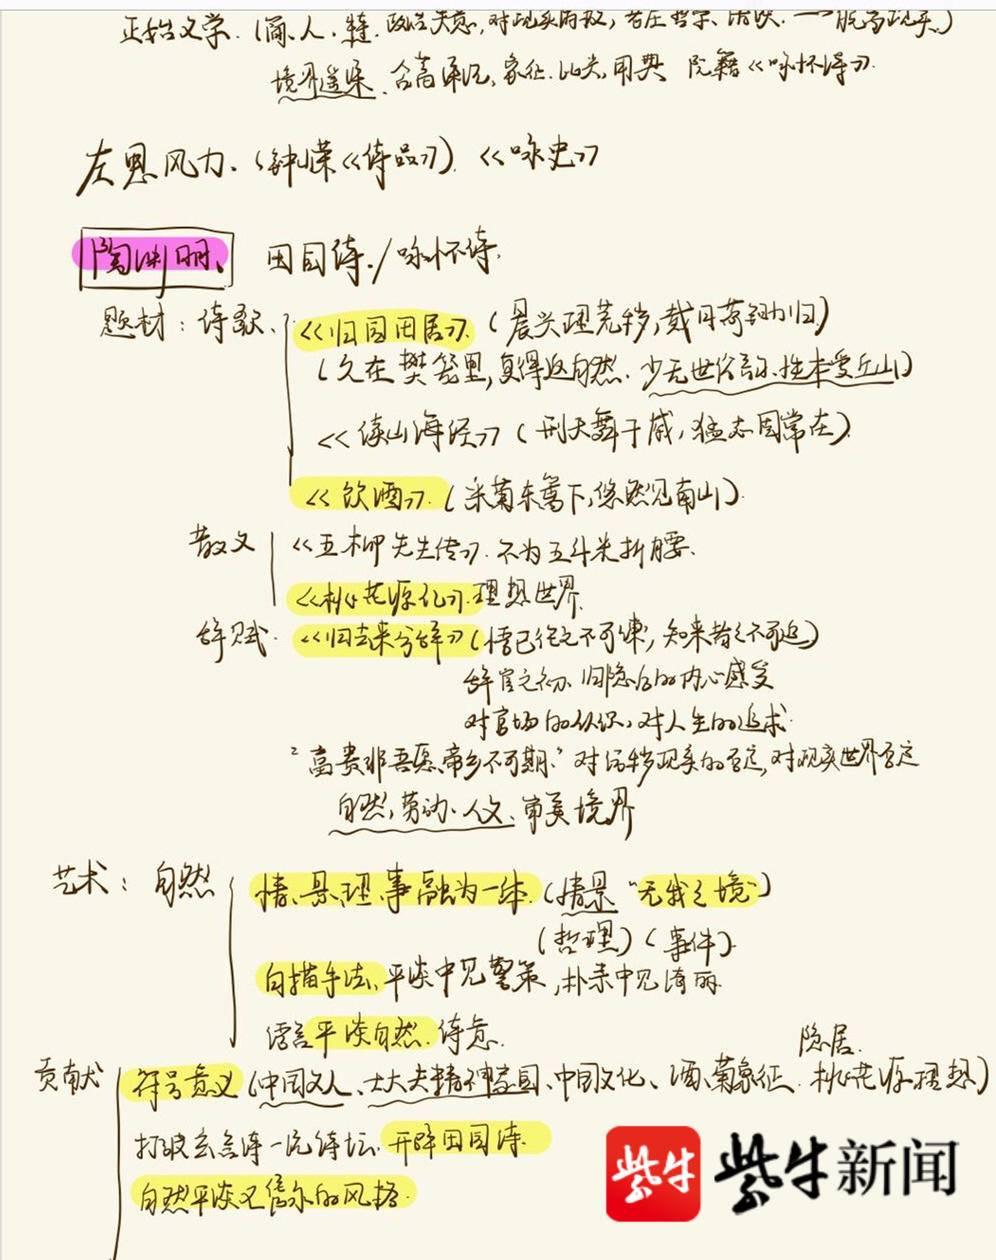 正始文学.(阮籍
境界遥深、含蓄深沉,象征.比兴,用典 阮籍《咏怀诗》.
左思风力.(钟嵘《诗品》).《咏史》
陶渊明、 田园诗./咏怀诗.
题材:诗歌、《归园田居》.(晨兴理荒秽,戴月荷锄归)
(久在樊笼里,复得返自然.少无世俗韵、性本爱丘山)
《读山海经》(刑天舞干戚,猛志固常在).
《饮酒》.(采菊东篱下,悠然见南山).
散文 《五柳先生传》.不为五斗米折腰.
《桃花源记》.理想世界.
辞赋.《归去来兮辞》(悟已往之不可谏,知来者之不可追)
辞官之初、归隐后的内心感受
对官场的认识,对人生的追求.
"富贵非吾愿,帝乡不可期."对污秽现实的 ,对现实世界
自然,劳动、人文、审美境界
艺术:自然 情、景、理、事融为一体.(情景 "无我之境")
(哲理)(事件).
白描手法、平淡中见警策,朴素中见绮丽.
语言平淡自然.诗意.
隐居.
贡献 符号意义(中国文人、士大夫精神家园、中国文化、酒、菊象征.桃花源理想)
打破玄言诗一统诗坛.开辟田园诗.
自然平淡又隽永的风格.
紫牛 紫牛新闻